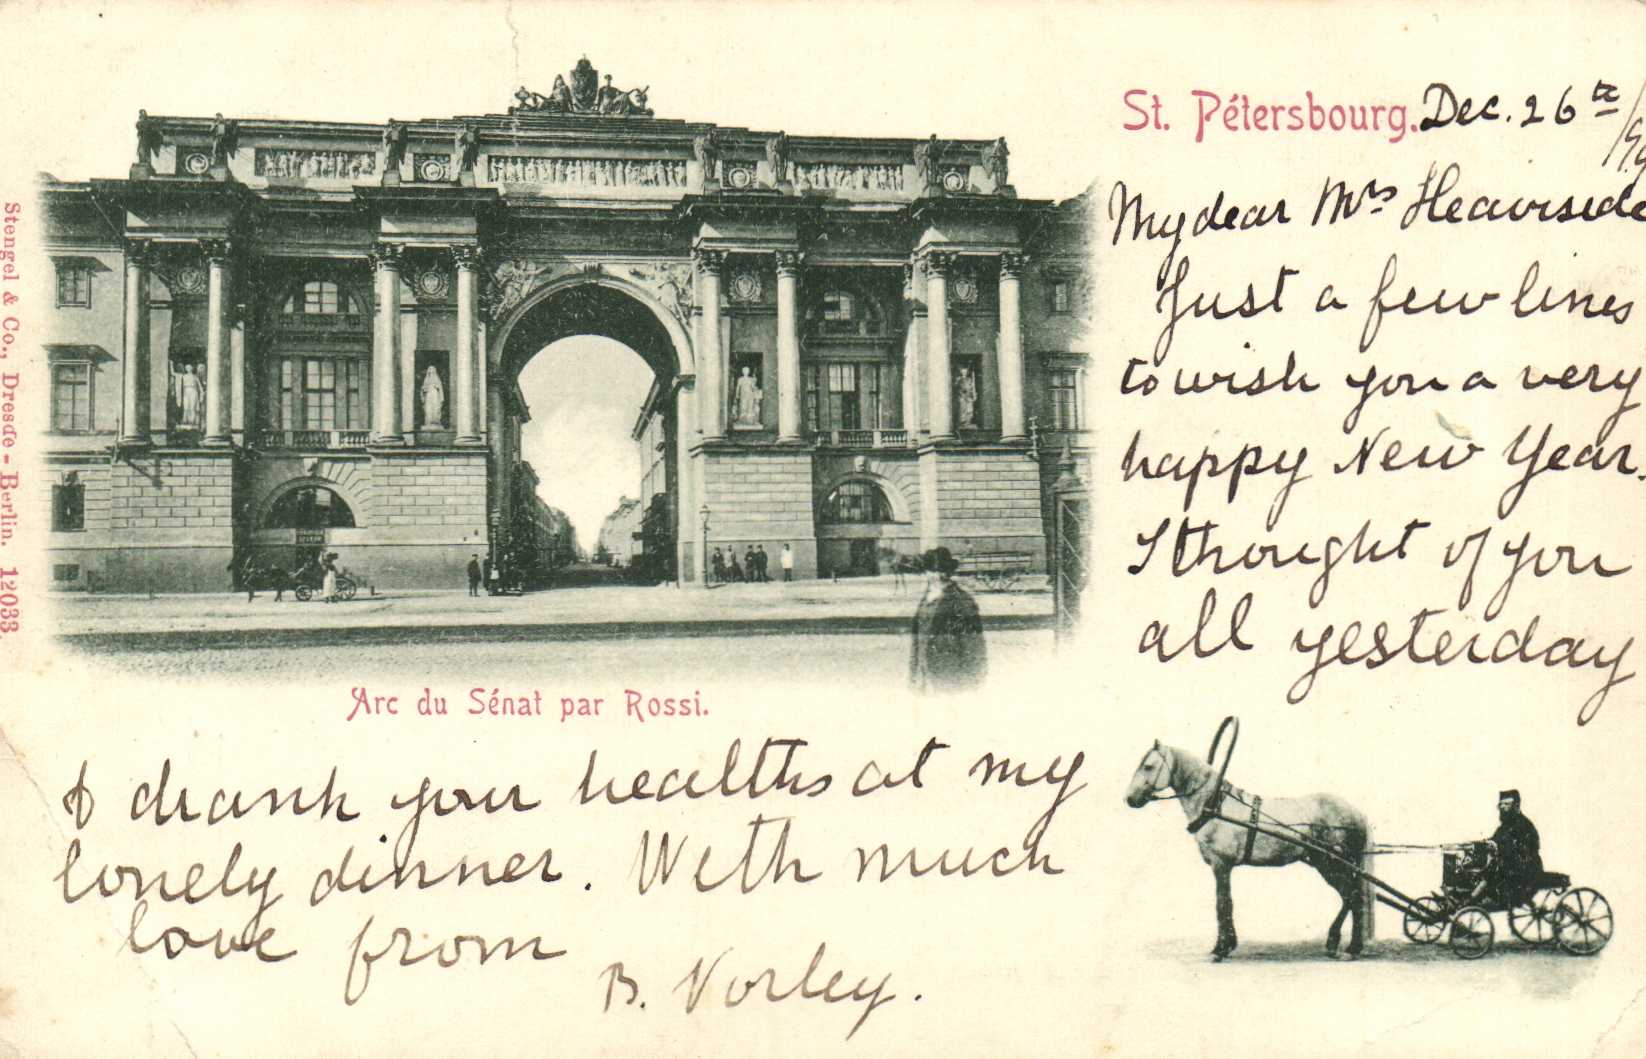 St. Pétersbourg. Dec. 26th /99
My dear Mrs Heaviside
Just a few lines
to wish you a very
happy New Year.
I thought of you
all yesterday
Arc du Sénat par Rossi.
I drank your healths at my
lonely dinner. With much
love from
B. Vorley.
Stengel & Co., Dresde - Berlin. 12033.